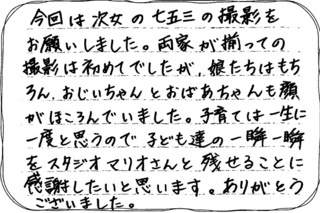 今回は次女の七五三の撮影を
お願いしました。両家が揃っての
撮影は初めてでしたが、娘たちはもち
ろん、おじいちゃんとおばあちゃんも顔
がほころんでいました。子育ては一生に
一度と思うので子ども達の一瞬一瞬
をスタジオマリオさんと残せることに
感謝したいと思います。ありがとう
ございました。